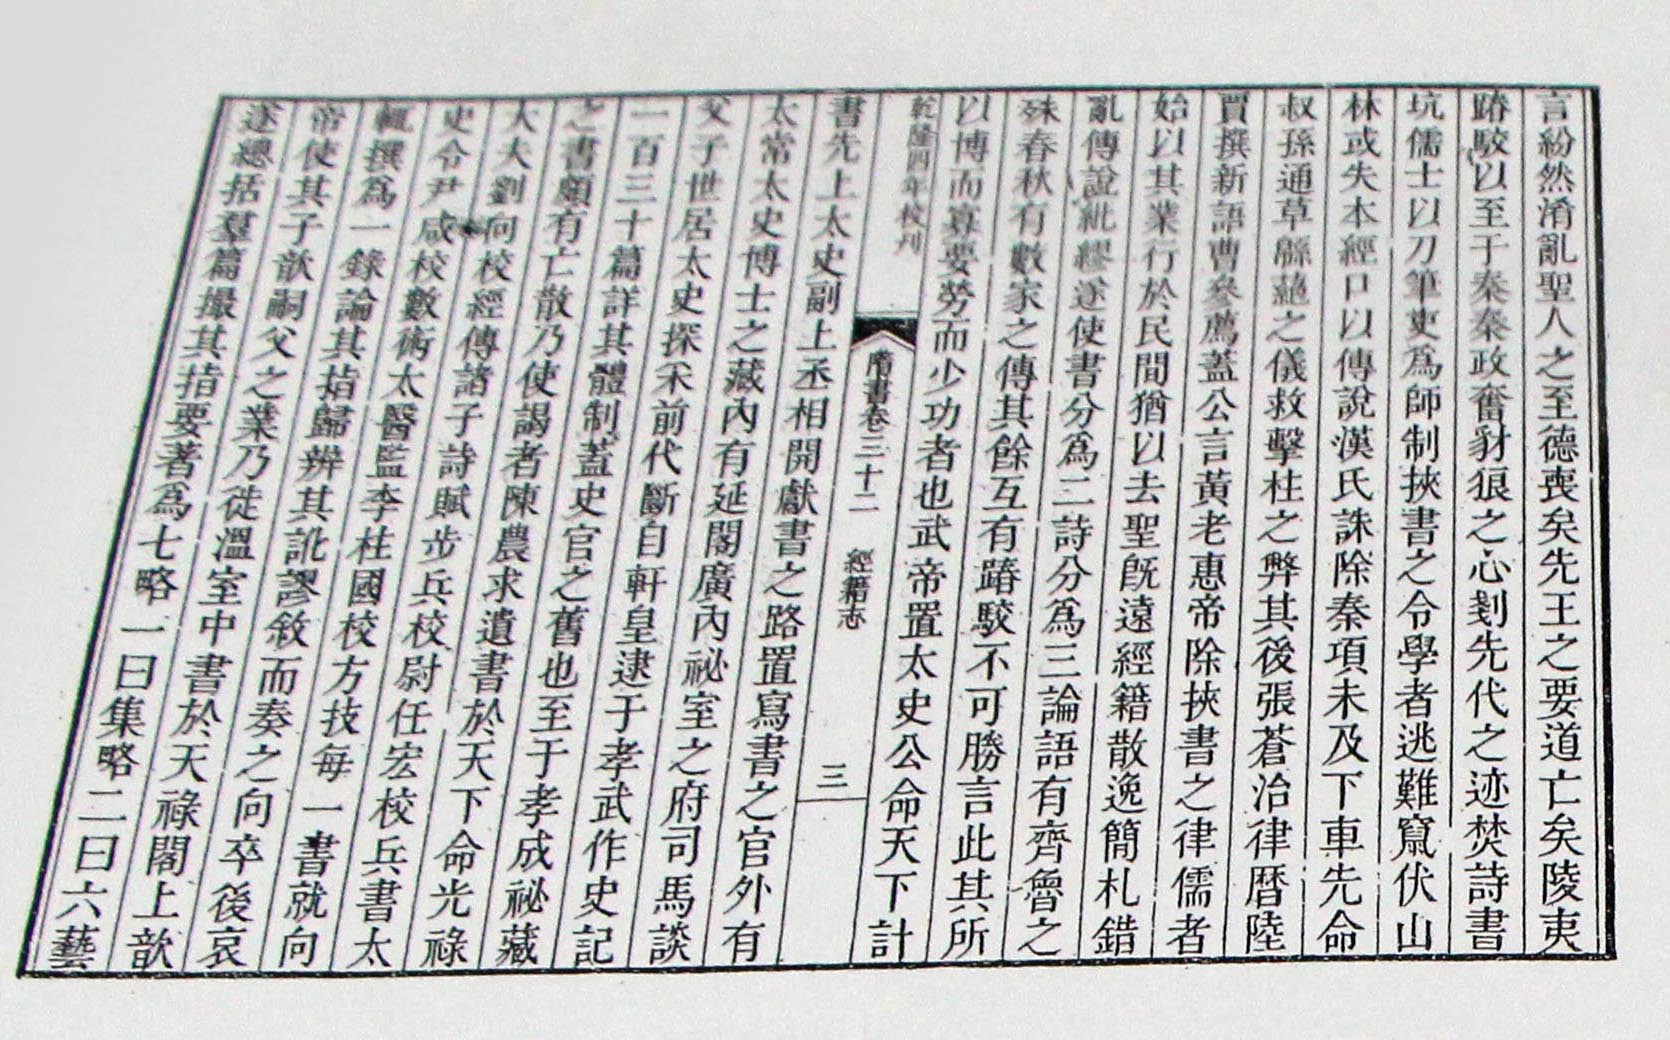 言紛然淆亂聖人之至德喪矣先王之要道亡矣陵夷
踳駮以至于秦秦政奮豺狼之心剗先代之迹焚詩書
坑儒士以刀筆吏爲師制挾書之令學者逃難竄伏山
林或失本經口以傳說漢氏誅除秦項未及下車先命
叔孫通草緜蕝之儀救擊柱之弊其後張蒼治律曆陸
賈撰新語曹參薦蓋公言黃老惠帝除挾書之律儒者
始以其業行於民間猶以去聖旣遠經籍散逸簡札錯
亂傳說紕繆遂使書分爲二詩分爲三論語有齊魯之
殊春秋有數家之傳其餘互有踳駮不可勝言此其所
以博而寡要勞而少功者也武帝置太史公命天下計
乾隆四年校刊
隋書卷三十二 經籍志
三
書先上太史副上丞相開獻書之路置寫書之官外有
太常太史博士之藏內有延閣廣內祕室之府司馬談
父子世居太史探采前代斷自軒皇逮于孝武作史記
一百三十篇詳其體制蓋史官之舊也至于孝成祕藏
之書頗有亡散乃使謁者陳農求遺書於天下命光祿
大夫劉向校經傳諸子詩賦步兵校尉任宏校兵書太
史令尹咸校數術太醫監李柱國校方技每一書就向
輒撰爲一錄論其指歸辨其訛謬敘而奏之向卒後哀
帝使其子歆嗣父之業乃徙溫室中書於天祿閣上歆
遂總括羣篇撮其指要著爲七略一曰集略二曰六藝